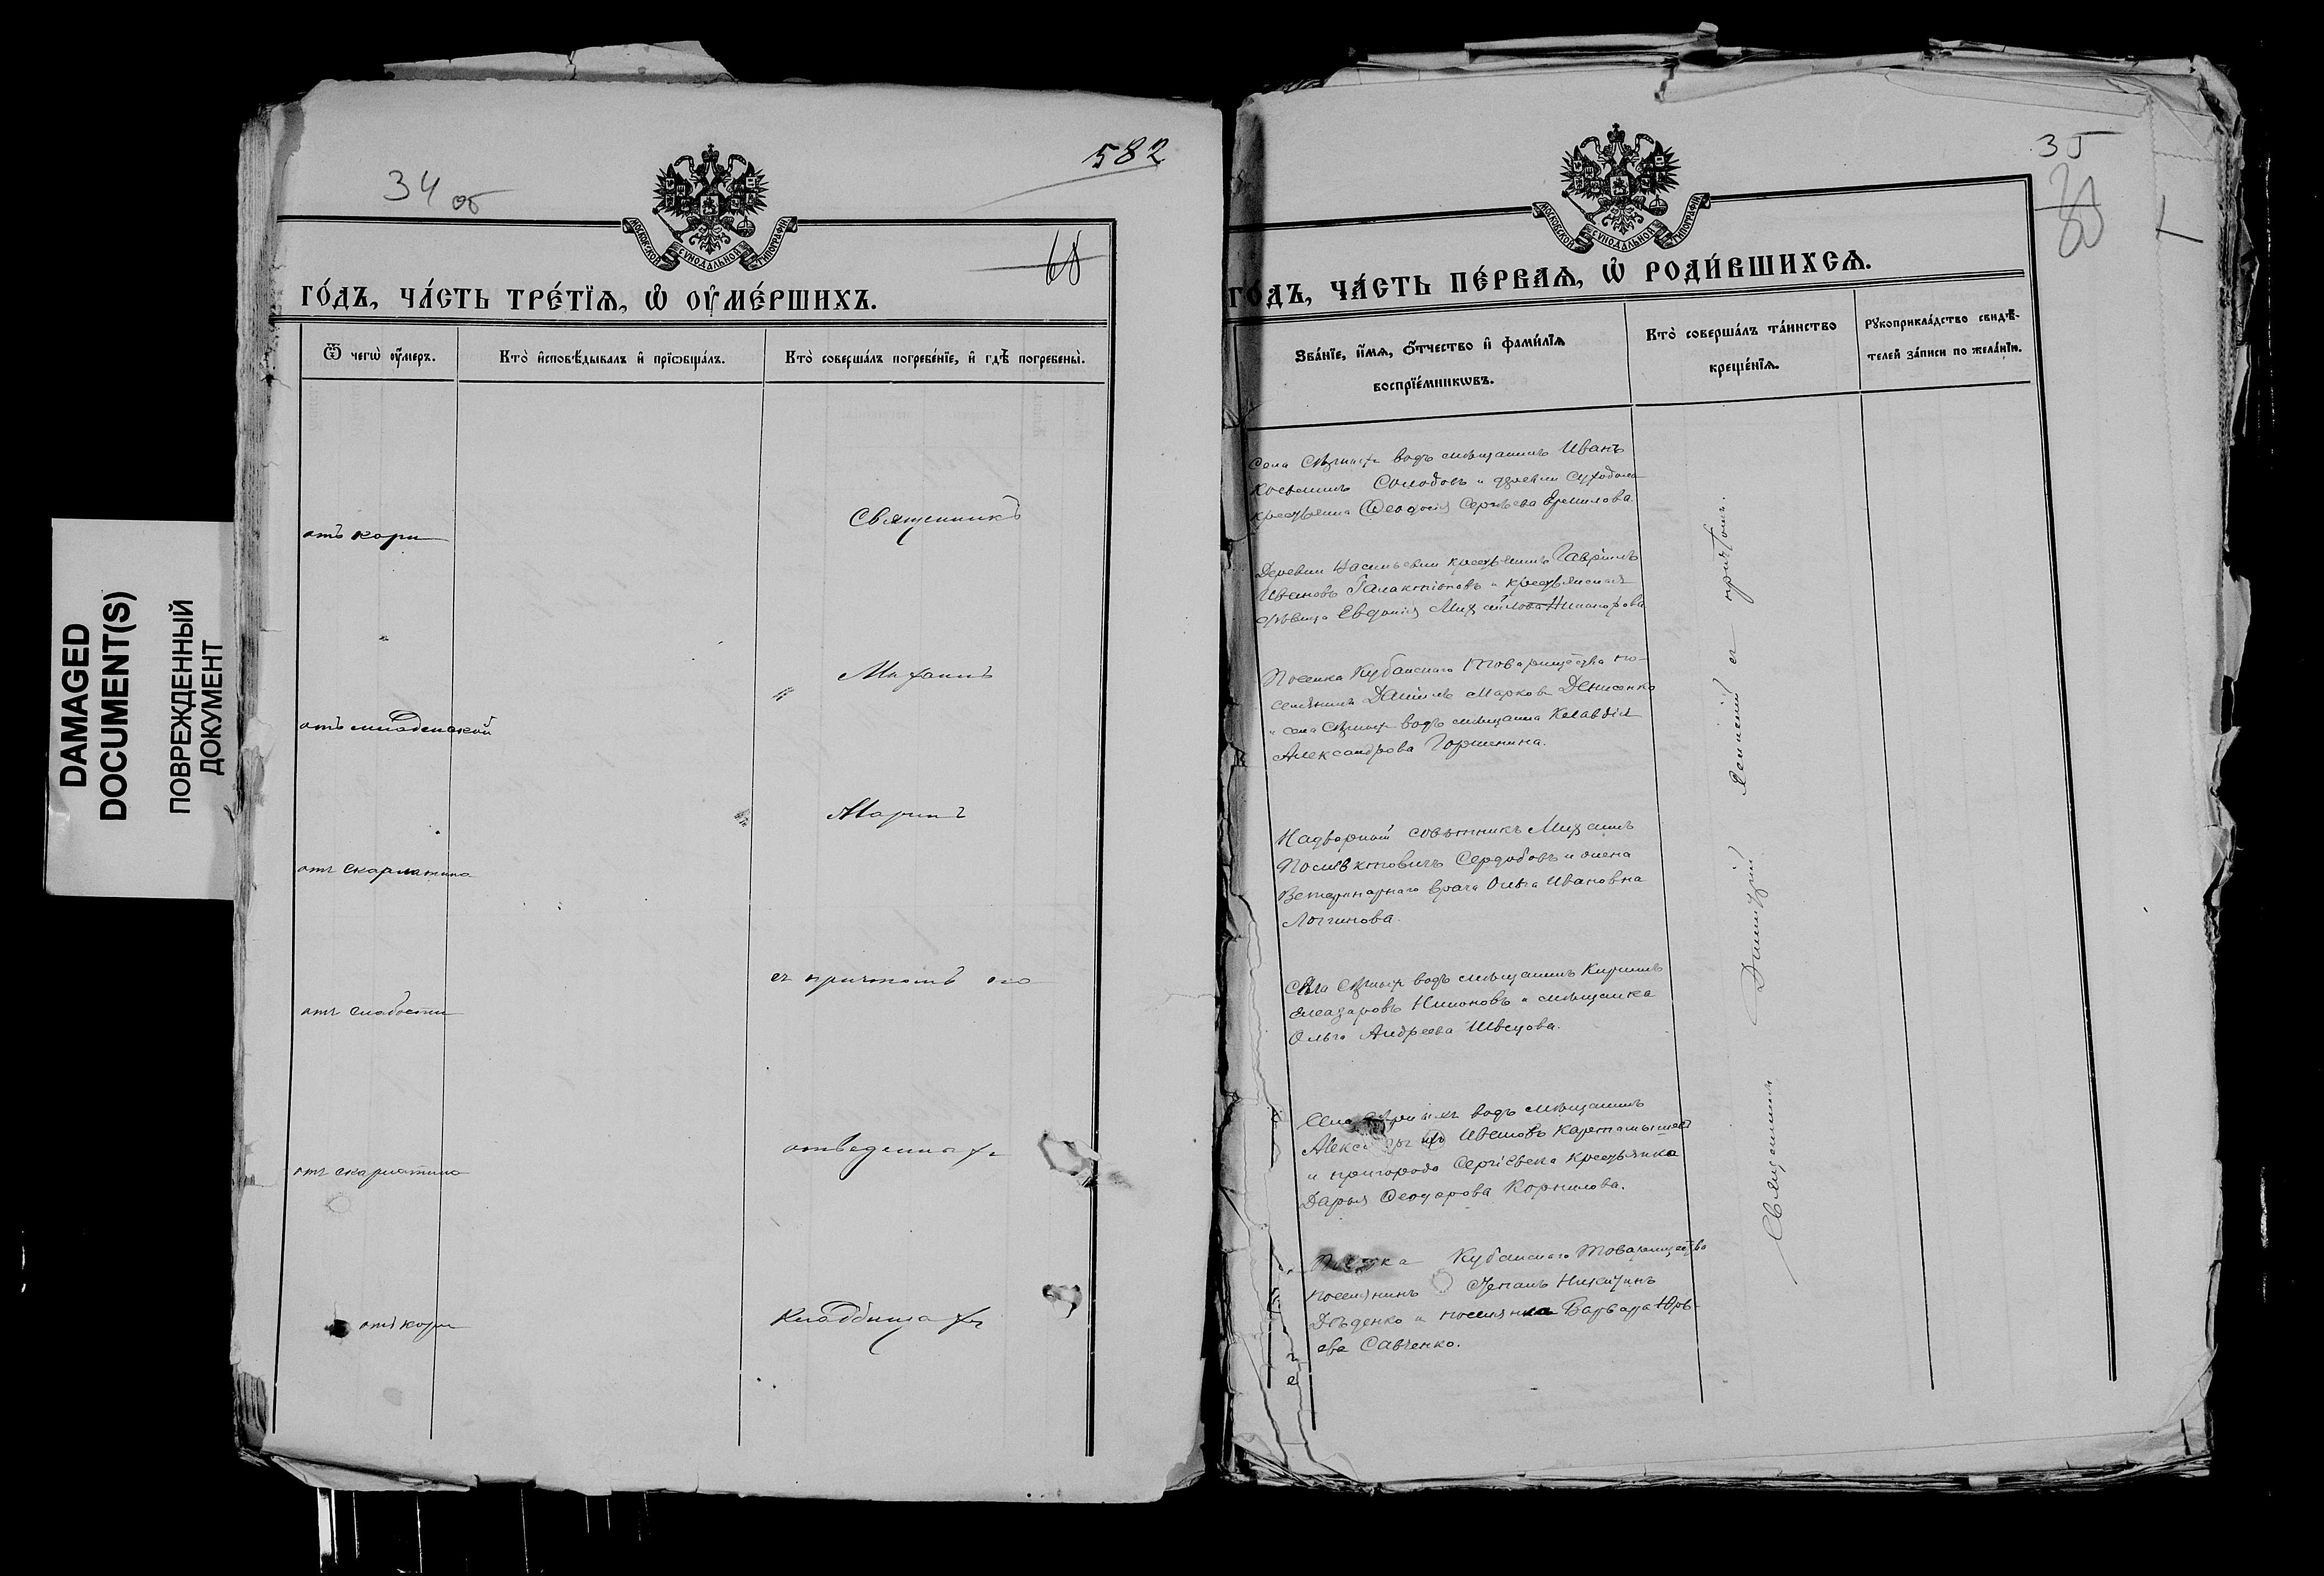 DAMAGED
DOCUMENT(S)
ПОВРЕЖДЕННЫЙ
ДОКУМЕНТ
34 об
582
МОСКОВСКОЙ СУНОДАЛЬНОЙ ТИПОГРАФІИ
68
ГО́ДЪ, ЧА́СТЬ ТРЕ́ТЇѦ, Ѡ҆ ОУ҆МЕ́РШИХЪ.
Ѿ чегѡ̀ оу҆́меръ.
Кто̀ и҆сповѣ́дывалъ и҆ прїѡбща́лъ.
Кто̀ соверша́лъ погребе́нїе, и҆ гдѣ̀ погребены̀.
отъ кори
Священникъ
"
Михаилъ
отъ младенской
Маринъ
отъ скарлатина
съ причтомъ
отъ слабости
отведенных
отъ скарлатина
отъ кори
кладбищахъ
35
МОСКОВСКОЙ СУНОДАЛЬНОЙ ТИПОГРАФІИ
ГО́ДЪ, ЧА́СТЬ ПЕ́РВАѦ, Ѡ҆ РОДИ́ВШИХСѦ.
Зва́нїе, и҆́мѧ, ѻ҆́тчество и҆ фами́лїѧ
воспрїе́мникѡвъ.
Кто̀ соверша́лъ та́инство
креще́нїѧ.
Рꙋкоприкла́дство свидѣ́-
телей за́писи по жела́нїю.
Села Сѣрныхъ водъ мѣщанинъ Иванъ
Косьминъ Солодовъ и деревни Суходола
крестьянка Ѳеодосія Сергѣева Ермилова
Деревни Васильевки крестьянинъ Гавріилъ
Ивановъ Галактіоновъ и крестьянская
дѣвица Евдокія Михайлова Никанорова
Поселка Кубанскаго Товарищества по-
селянинъ Даніилъ Марковъ Денисенко
и села Сѣрныхъ водъ мѣщанка Клавдія
Александрова Горшенина.
Надворный совѣтникъ Михаилъ
Поліевктовичъ Сердобовъ и жена
Ветеринарнаго врача Ольга Ивановна
Логинова.
Села Сѣрныхъ водъ мѣщанинъ Кириллъ
Елеазаровъ Никоновъ и мѣщанка
Ольга Андреева Швецова.
Села водъ мѣщанинъ
Ивановъ Картамышевъ
и пригорода Сергіевска крестьянка
Дарья Ѳеодорова Корнилова.
Поселка Кубанскаго Товарищества
поселянинъ Стефанъ Никитинъ
Дѣденко и поселянка Варвара Юрь-
ева Савченко.
Священникъ Димитрій Ясенскій съ причтомъ.